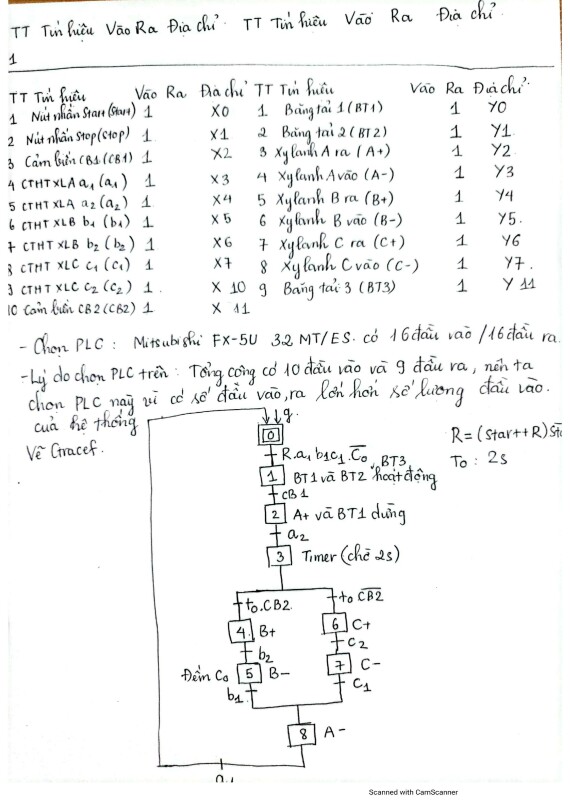 TT Tín hiệu Vào Ra Địa chỉ TT Tín hiệu Vào Ra Địa chỉ
1
TT Tín hiệu Vào Ra Địa chỉ TT Tín hiệu Vào Ra Địa chỉ
1 Nút nhấn Start (Start) 1 X0 1 Băng tải 1 (BT1) 1 Y0
2 Nút nhấn Stop (Stop) 1 X1 2 Băng tải 2 (BT2) 1 Y1
3 Cảm biến CB1 (CB1) 1 X2 3 Xylanh A ra (A+) 1 Y2
4 CTHT XLA a1 (a1) 1 X3 4 Xylanh A vào (A-) 1 Y3
5 CTHT XLA a2 (a2) 1 X4 5 Xylanh B ra (B+) 1 Y4
6 CTHT XLB b1 (b1) 1 X5 6 Xylanh B vào (B-) 1 Y5.
7 CTHT XLB b2 (b2) 1 X6 7 Xylanh C ra (C+) 1 Y6
8 CTHT XLC c1 (c1) 1 X7 8 Xylanh C vào (C-) 1 Y7.
9 CTHT XLC c2 (c2) 1 X 10 9 Băng tải 3 (BT3) 1 Y 11
10 Cảm biến CB2 (CB2) 1 X 11
- Chọn PLC : Mitsubishi FX-5U 32 MT/ES. có 16 đầu vào /16 đầu ra
- Lý do chọn PLC trên : Tổng cộng có 10 đầu vào và 9 đầu ra, nên ta
chọn PLC này vì có số đầu vào, ra lớn hơn số lượng đầu vào.
của hệ thống
Vẽ Gracef.
g.
0
R = (Start + R)
To : 2s
R.a1 b1c1.C̅0
1 BT1 và BT2, BT3 hoạt động
CB1
2 A+ và BT1 dừng
a2
3 Timer (chờ 2s)
to.CB2 to C̅B̅2̅
4 B+ 6 C+
b2 c2
Đếm C0 5 B- 7 C-
b1 c1
8 A-
a1
Scanned with CamScanner